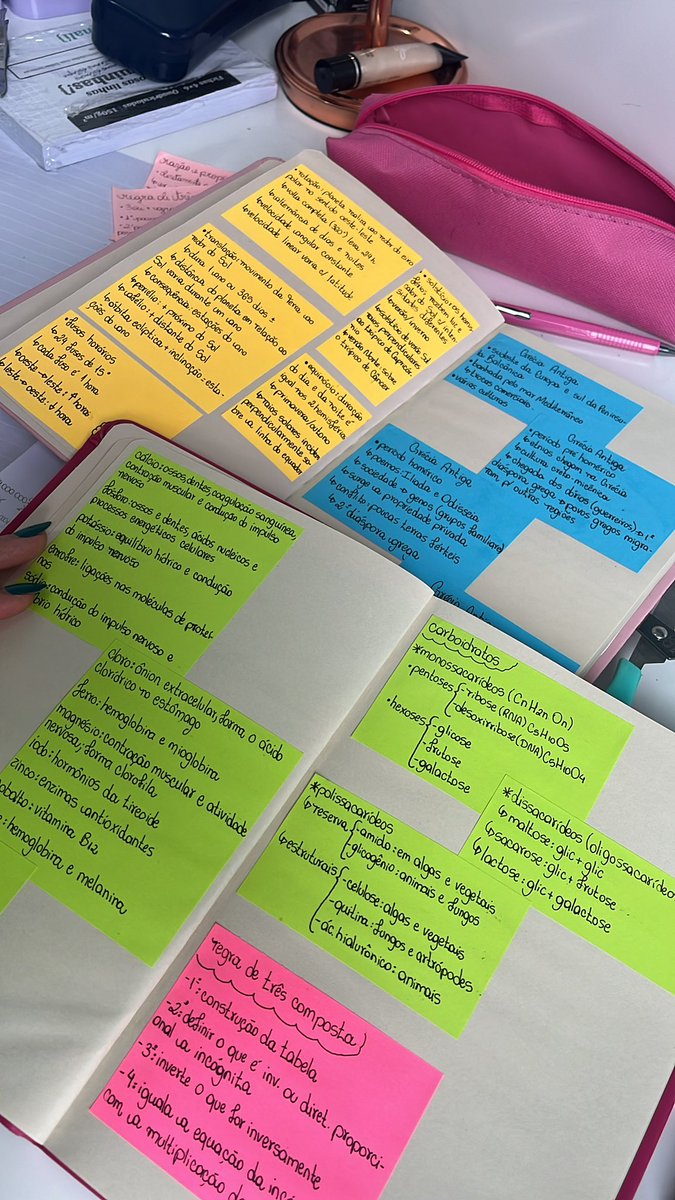 Fichas 4x6 Quadriculadas 150g/m²
regra de três
• rotação: planeta realiza ao redor do eixo
polar no sentido oeste-leste
↳ volta completa (360°) leva 24h
↳ alternância de dias e noites
↳ velocidade angular constante
↳ velocidade linear varia c/ latitude
• translação: movimento da Terra ao
redor do Sol
↳ dura 1 ano ou 365 dias ±
↳ distância do planeta em relação ao
Sol varia durante um ano
↳ consequência: estações do ano
↳ periélio: + próximo do Sol
↳ afélio: + distante do Sol
↳ órbita eclíptica + inclinação: esta-
ções do ano
↳ verão/inverno
• equinócio: duração
do dia e da noite é
igual nos 2 hemisférios
↳ primavera/outono
↳ raios solares incidem
perpendicularmente so-
bre a linha do equador
• fusos horários
↳ 24 fusos de 15°
↳ cada fuso é 1 hora
↳ oeste → leste: ↑ hora
↳ leste → oeste: ↓ hora
Grécia Antiga
• sudeste da Europa e sul da Penínsu-
la Balcânica
• banhada pelo mar Mediterrâneo
↳ trocas comerciais
• várias culturas
Grécia Antiga
• período pré homérico
↳ etnias chegam na Grécia
↳ cultura creto micênica
↳ chegada dos dórios (guerreiros) → 1ª
diáspora grega → povos gregos migra-
ram p/ outras regiões
Grécia Antiga
• período homérico
↳ poemas: Ilíada e Odisseia
↳ sociedade → genos (grupos familiares
↳ surge a propriedade privada
↳ conflito: poucas terras férteis
↳ 2ª diáspora grega
Grécia Anti
cálcio: ossos, dentes, coagulação sanguínea
contração muscular e condução do impulso
nervoso
fósforo: ossos e dentes, ácidos nucleicos e
processos energéticos celulares
potássio: equilíbrio hídrico e condução
do impulso nervoso
enxofre: ligações nas moléculas de proteí-
nas
condução do impulso nervoso e
hídrico
cloro: ânion extracelular, forma o ácido
clorídrico no estômago
ferro: hemoglobina e mioglobina
magnésio: contração muscular e atividade
nervosa; forma clorofila
iodo: hormônios da tireoide
zinco: enzimas antioxidantes
obalto: vitamina B12
e: hemoglobina e melanina
carboidratos
*monossacarídeos (CnH2nOn)
• pentoses { -ribose (RNA) C5H10O5
-desoxirribose (DNA) C5H10O4
• hexoses { -glicose
-frutose
-galactose
*dissacarídeos (oligossacarídeo
↳ maltose: glic + glic
↳ sacarose: glic + frutose
↳ lactose: glic + galactose
*polissacarídeos
↳ reserva { amido: em algas e vegetais
glicogênio: animais e fungos
↳ estruturais { -celulose: algas e vegetais
-quitina: fungos e artrópodes
-ác. hialurônico: animais
regra de três composta
-1°: construção da tabela
-2°: definir o que é inv. ou diret. proporci-
onal a incógnita
-3°: inverte o que for inversamente
-4: iguala a equação da incó
com a multiplicação da